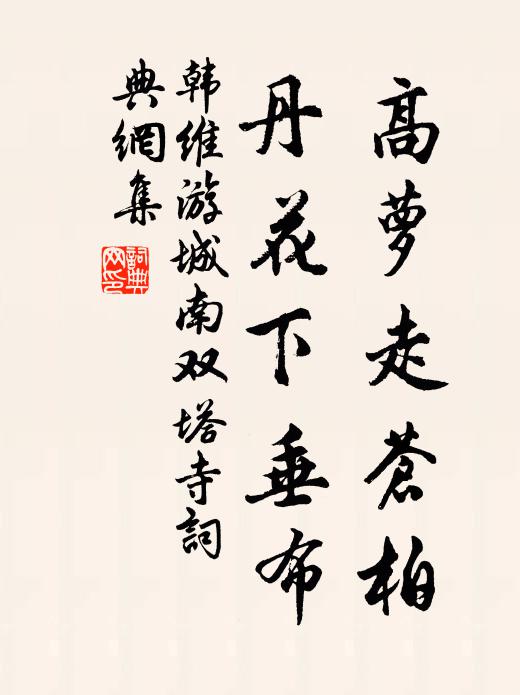 高萝走苍柏
丹花下垂布
韩维游城南双塔寺詞
典網集
詞典
网印